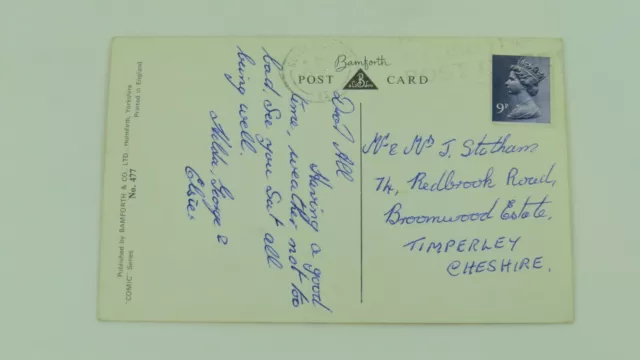 Bamforth
POST CARD
9P
Dear All
Having a good
time, weather not to
bad, See you Sat all
being well.
Hilda, George &
Elsie
Mr & Mrs J. Stotham
74, Redbrook Road,
Broomwood Estate,
TIMPERLEY
CHESHIRE.
Published by BAMFORTH & CO. LTD. Holmfirth, Yorkshire
"COMIC" Series No. 477 Printed in England